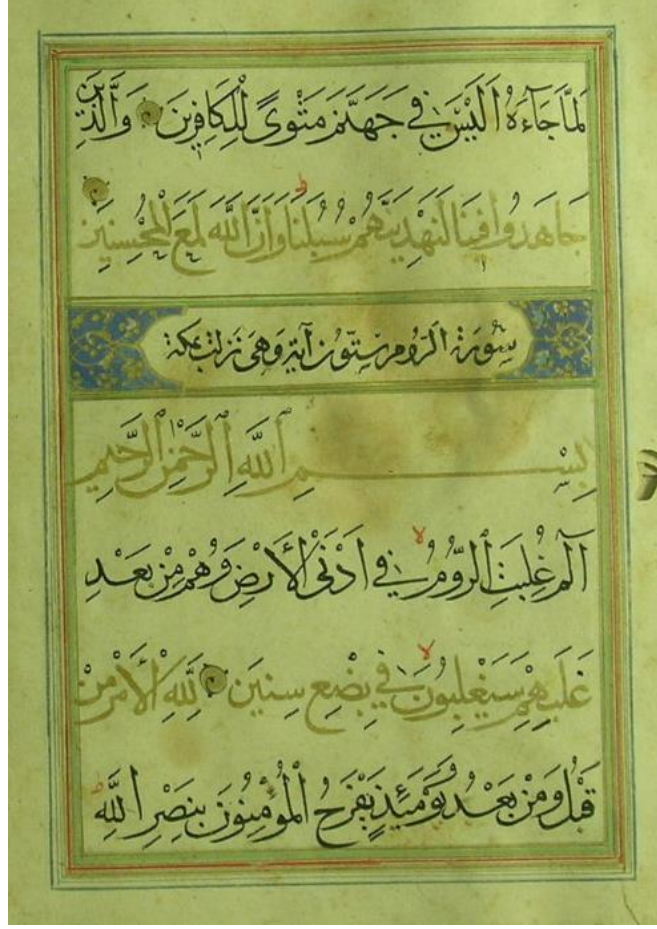 لَمَّا جَآءَهُ اَلَيْسَ فِي جَهَنَّمَ مَثْوًى لِلْكَافِرِينَ وَالَّذِينَ
جَاهَدُوا فِينَا لَنَهْدِيَنَّهُمْ سُبُلَنَا وَاِنَّ اللَّهَ لَمَعَ الْمُحْسِنِينَ
سورة الروم ستون آية وهى نزلت بمكة
بِسْمِ اللَّهِ الرَّحْمٰنِ الرَّحِيمِ
الٓمٓ غُلِبَتِ الرُّومُ فِي اَدْنَى الْاَرْضِ وَهُمْ مِنْ بَعْدِ
غَلَبِهِمْ سَيَغْلِبُونَ فِي بِضْعِ سِنِينَ لِلَّهِ الْاَمْرُ مِنْ
قَبْلُ وَمِنْ بَعْدُ وَيَوْمَئِذٍ يَفْرَحُ الْمُؤْمِنُونَ بِنَصْرِ اللَّهِ